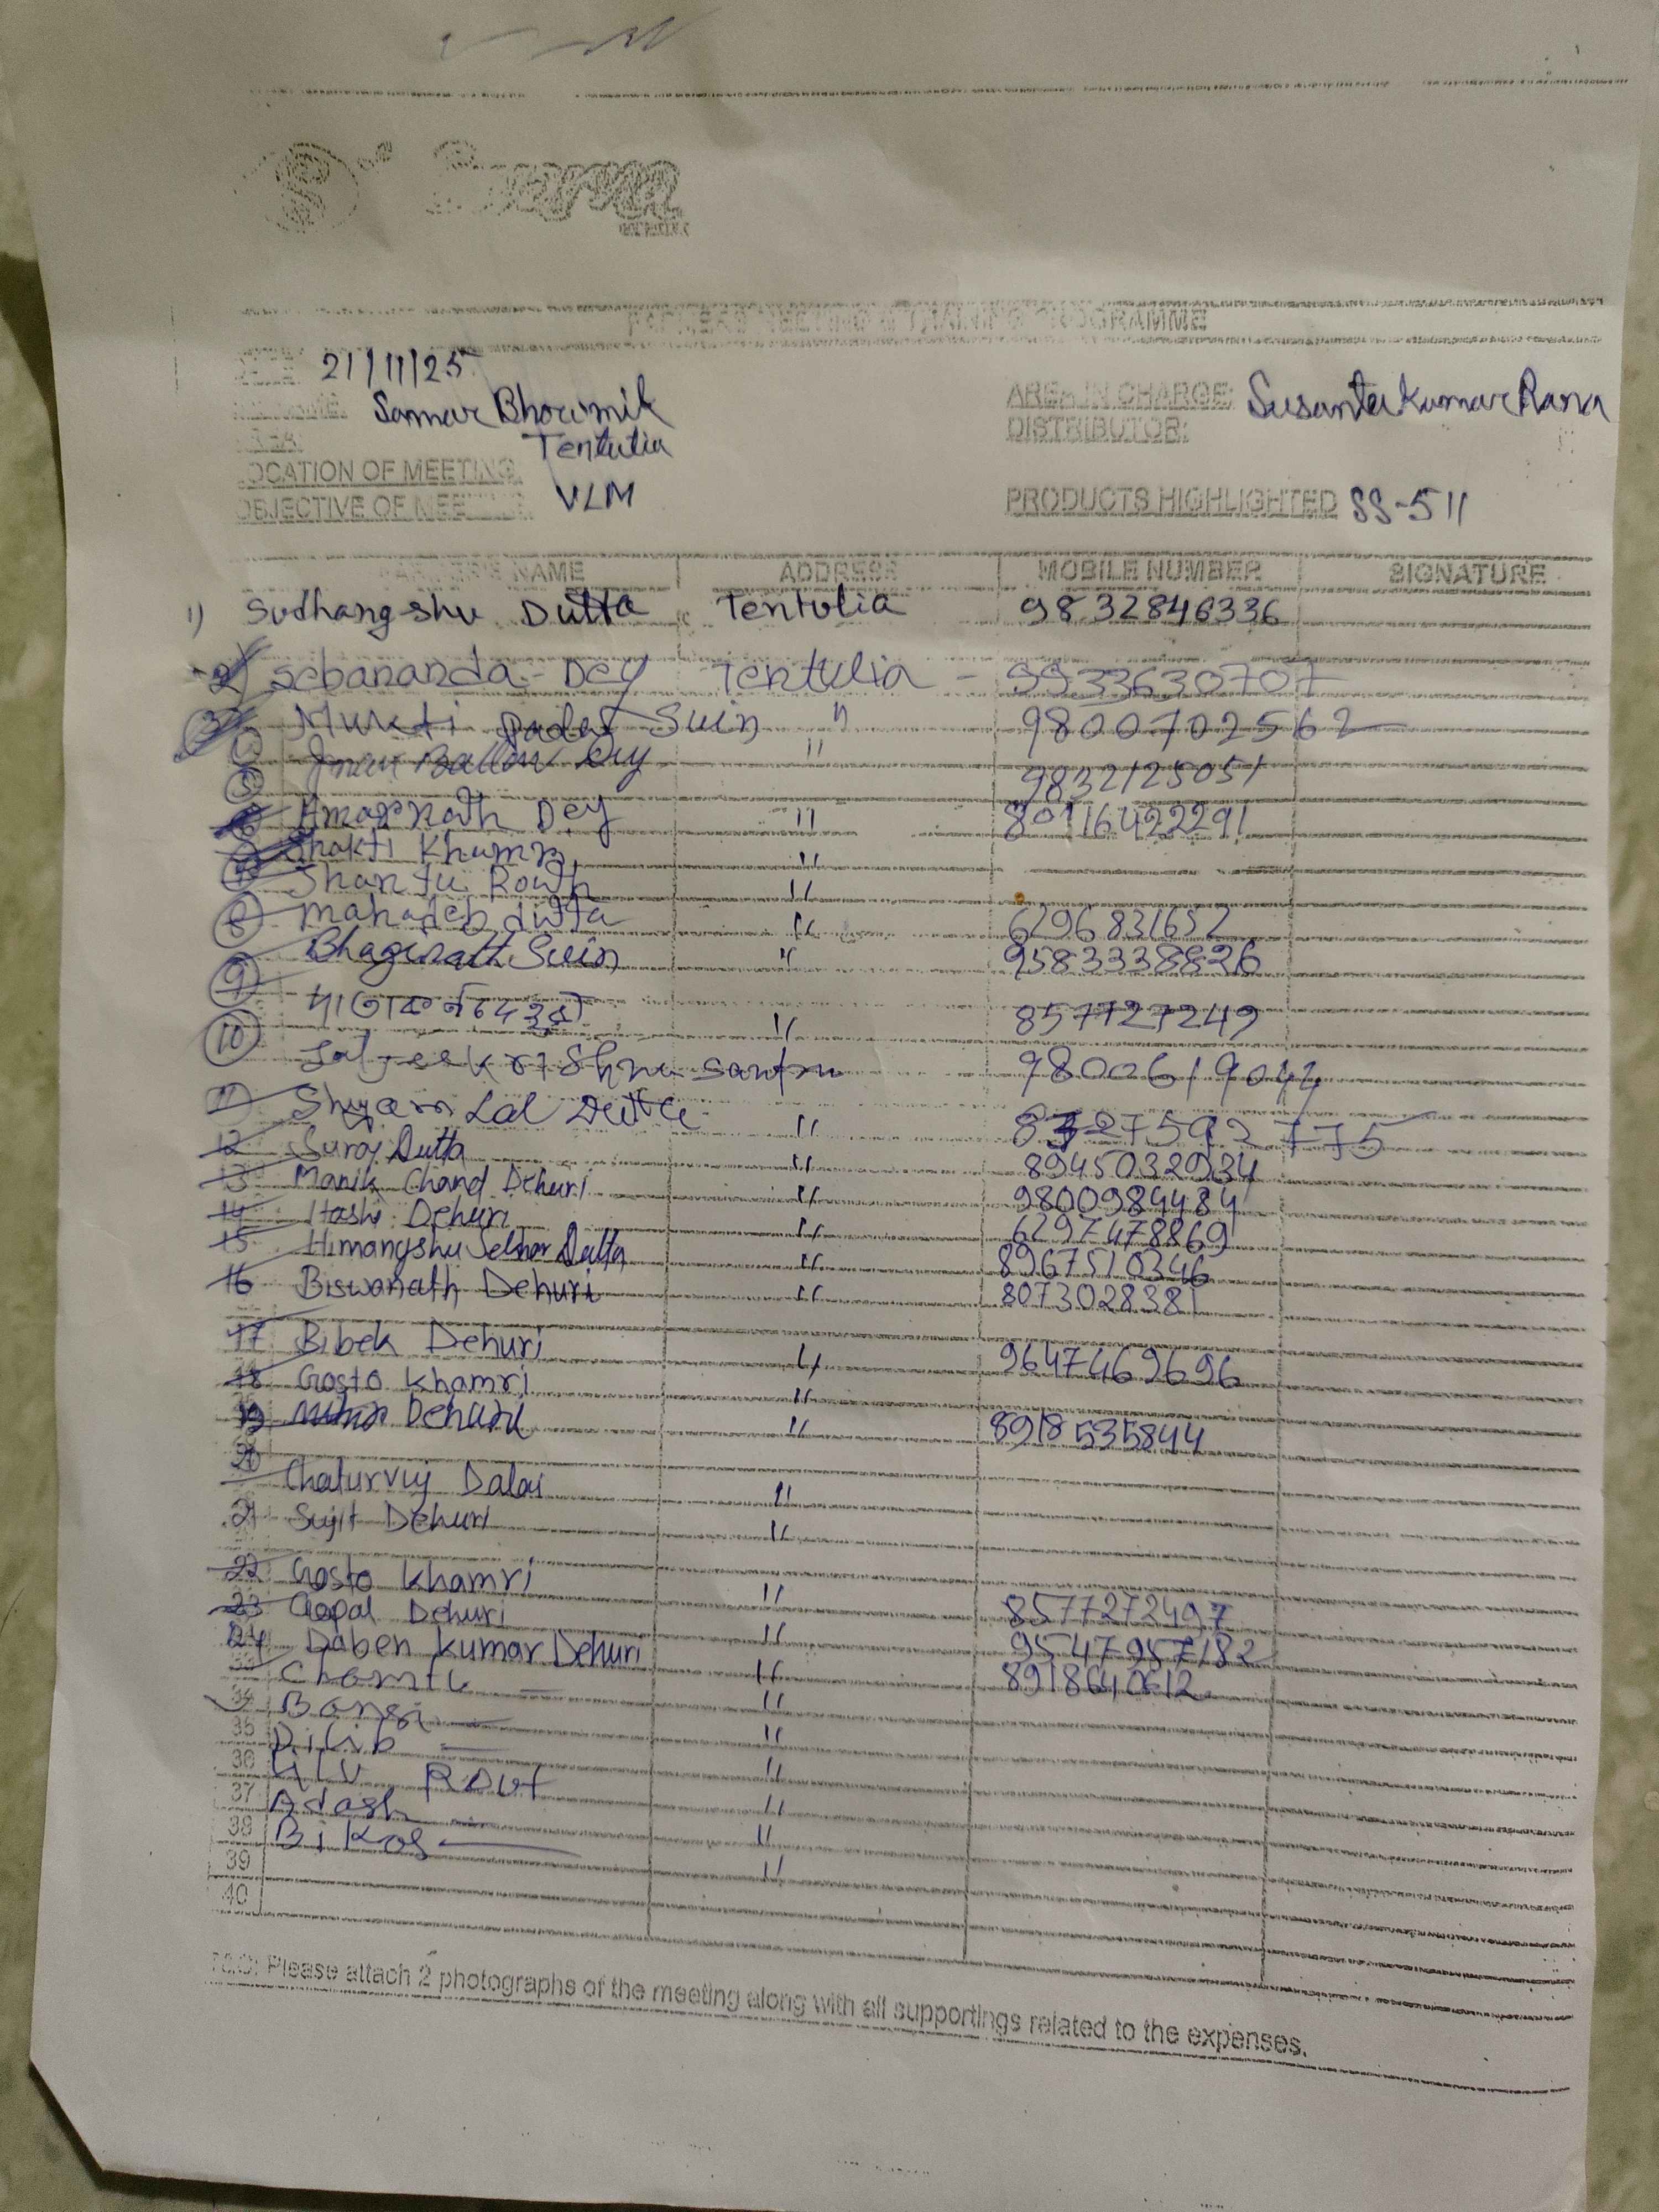 FARMERS MEETING & TRAINING PROGRAMME
21/11/25
Samar Bhowmik
AREA IN CHARGE: Susanta Kumar Rana
Tentulia
DISTRIBUTOR:
LOCATION OF MEETING
OBJECTIVE OF MEETING VLM
PRODUCTS HIGHLIGHTED SS-511
NAME ADDRESS MOBILE NUMBER SIGNATURE
1) Sudhangshu Dutta Tentulia 9832846336
2) Sebananda - Dey Tentulia - 9933630707
3) Mukti Pada Suin " 9800702562
Dey " 9832125051
Amarnath Dey "
Shakti Khamri "
Shantu Routh "
8 mahadeb dutta " 6296831652
9 Bhaginath Suin " 9583338826
10 " 857727249
santra 9800619042
11 Shyam Lal Dutta " 7592775
12 Suraj Dutta " 8945032934
13 Manik Chand Dehuri " 9800984484
14 Hashi Dehuri " 6297478869
15 Himangshu Sekhar Dutta " 8967510346
16 Biswanath Dehuri " 8073028381
17 Bibek Dehuri " 9647469696
18 Gosto Khamri "
19 Dehuri " 8918535844
20 Chaturvuj Dalai "
21 Sujit Dehuri "
22 Gosto Khamri "
23 Gopal Dehuri " 8577272497
24 Daben Kumar Dehuri " 9547957182
33 " 8918640612
34 Bansi - "
35 Dilib - "
36 Rout "
37 Adash "
38 Bikas - "
39 "
40
Please attach 2 photographs of the meeting along with all supportings related to the expenses.